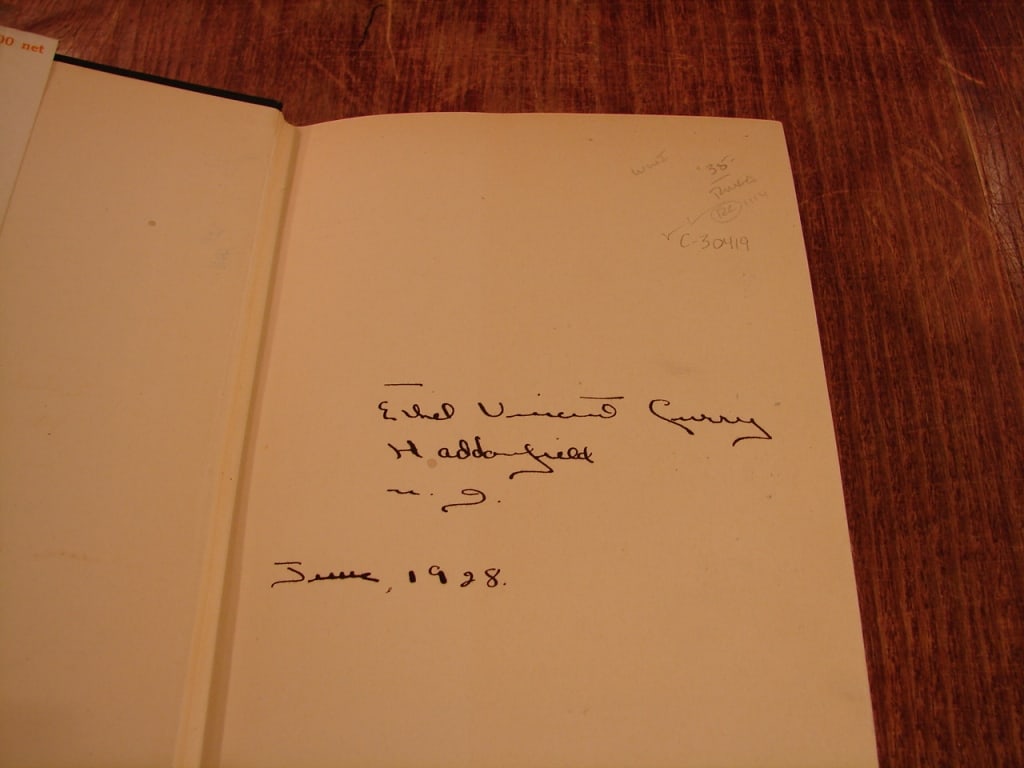 00 net
'35-
C-30419
Ethel Vincent Curry
Haddonfield
n. J.
June, 1928.